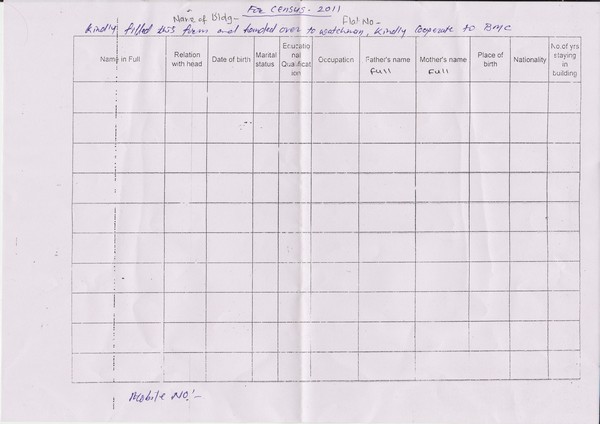 For CENSUS- 2011
Name of Bldg- Flat No-
Kindly filled this form and handed over to watchman, Kindly Cooperate to BMC
Name in Full Relation with head Date of birth Marital status Educational Qualification Occupation Father's name Full Mother's name Full Place of birth Nationality No.of yrs staying in building
Mobile NO:-